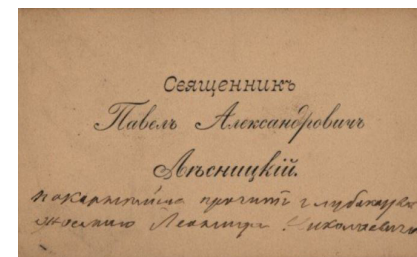 Священникъ
Павелъ Александровичъ
Лѣсницкій.
покорнѣйше проситъ глубокоув
жаемаго Леонида Николаевича